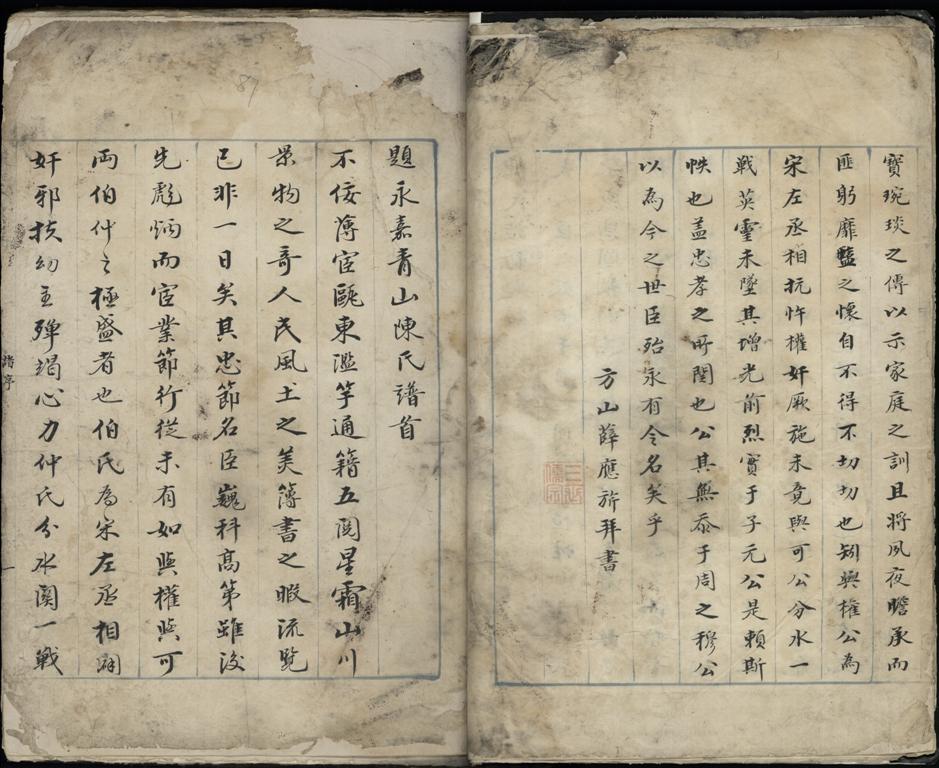 寶琬琰之傳以示家庭之訓且將夙夜瞻承而
匪躬靡監之懷自不得不切切也矧與權公為
宋左丞相抗忤權奸厥施未竟與可公分水一
戰英靈未墜其增光前烈實于子元公是賴斯
帙也蓋忠孝之所闗也公其無忝于周之穆公
以為今之世臣殆永有令名矣乎
方山薛應旂拜書
題永嘉青山陳氏譜首
不佞薄宦甌東濫竽通籍五閱星霜山川
景物之奇人民風土之美簿書之暇流覽
已非一日矣其忠節名臣巍科高第雖後
先彪炳而宦業節行從未有如與權與可
両伯仲之極盛者也伯氏為宋左丞相闢
奸邪扶幼主殫竭心力仲氏分水関一戰
87